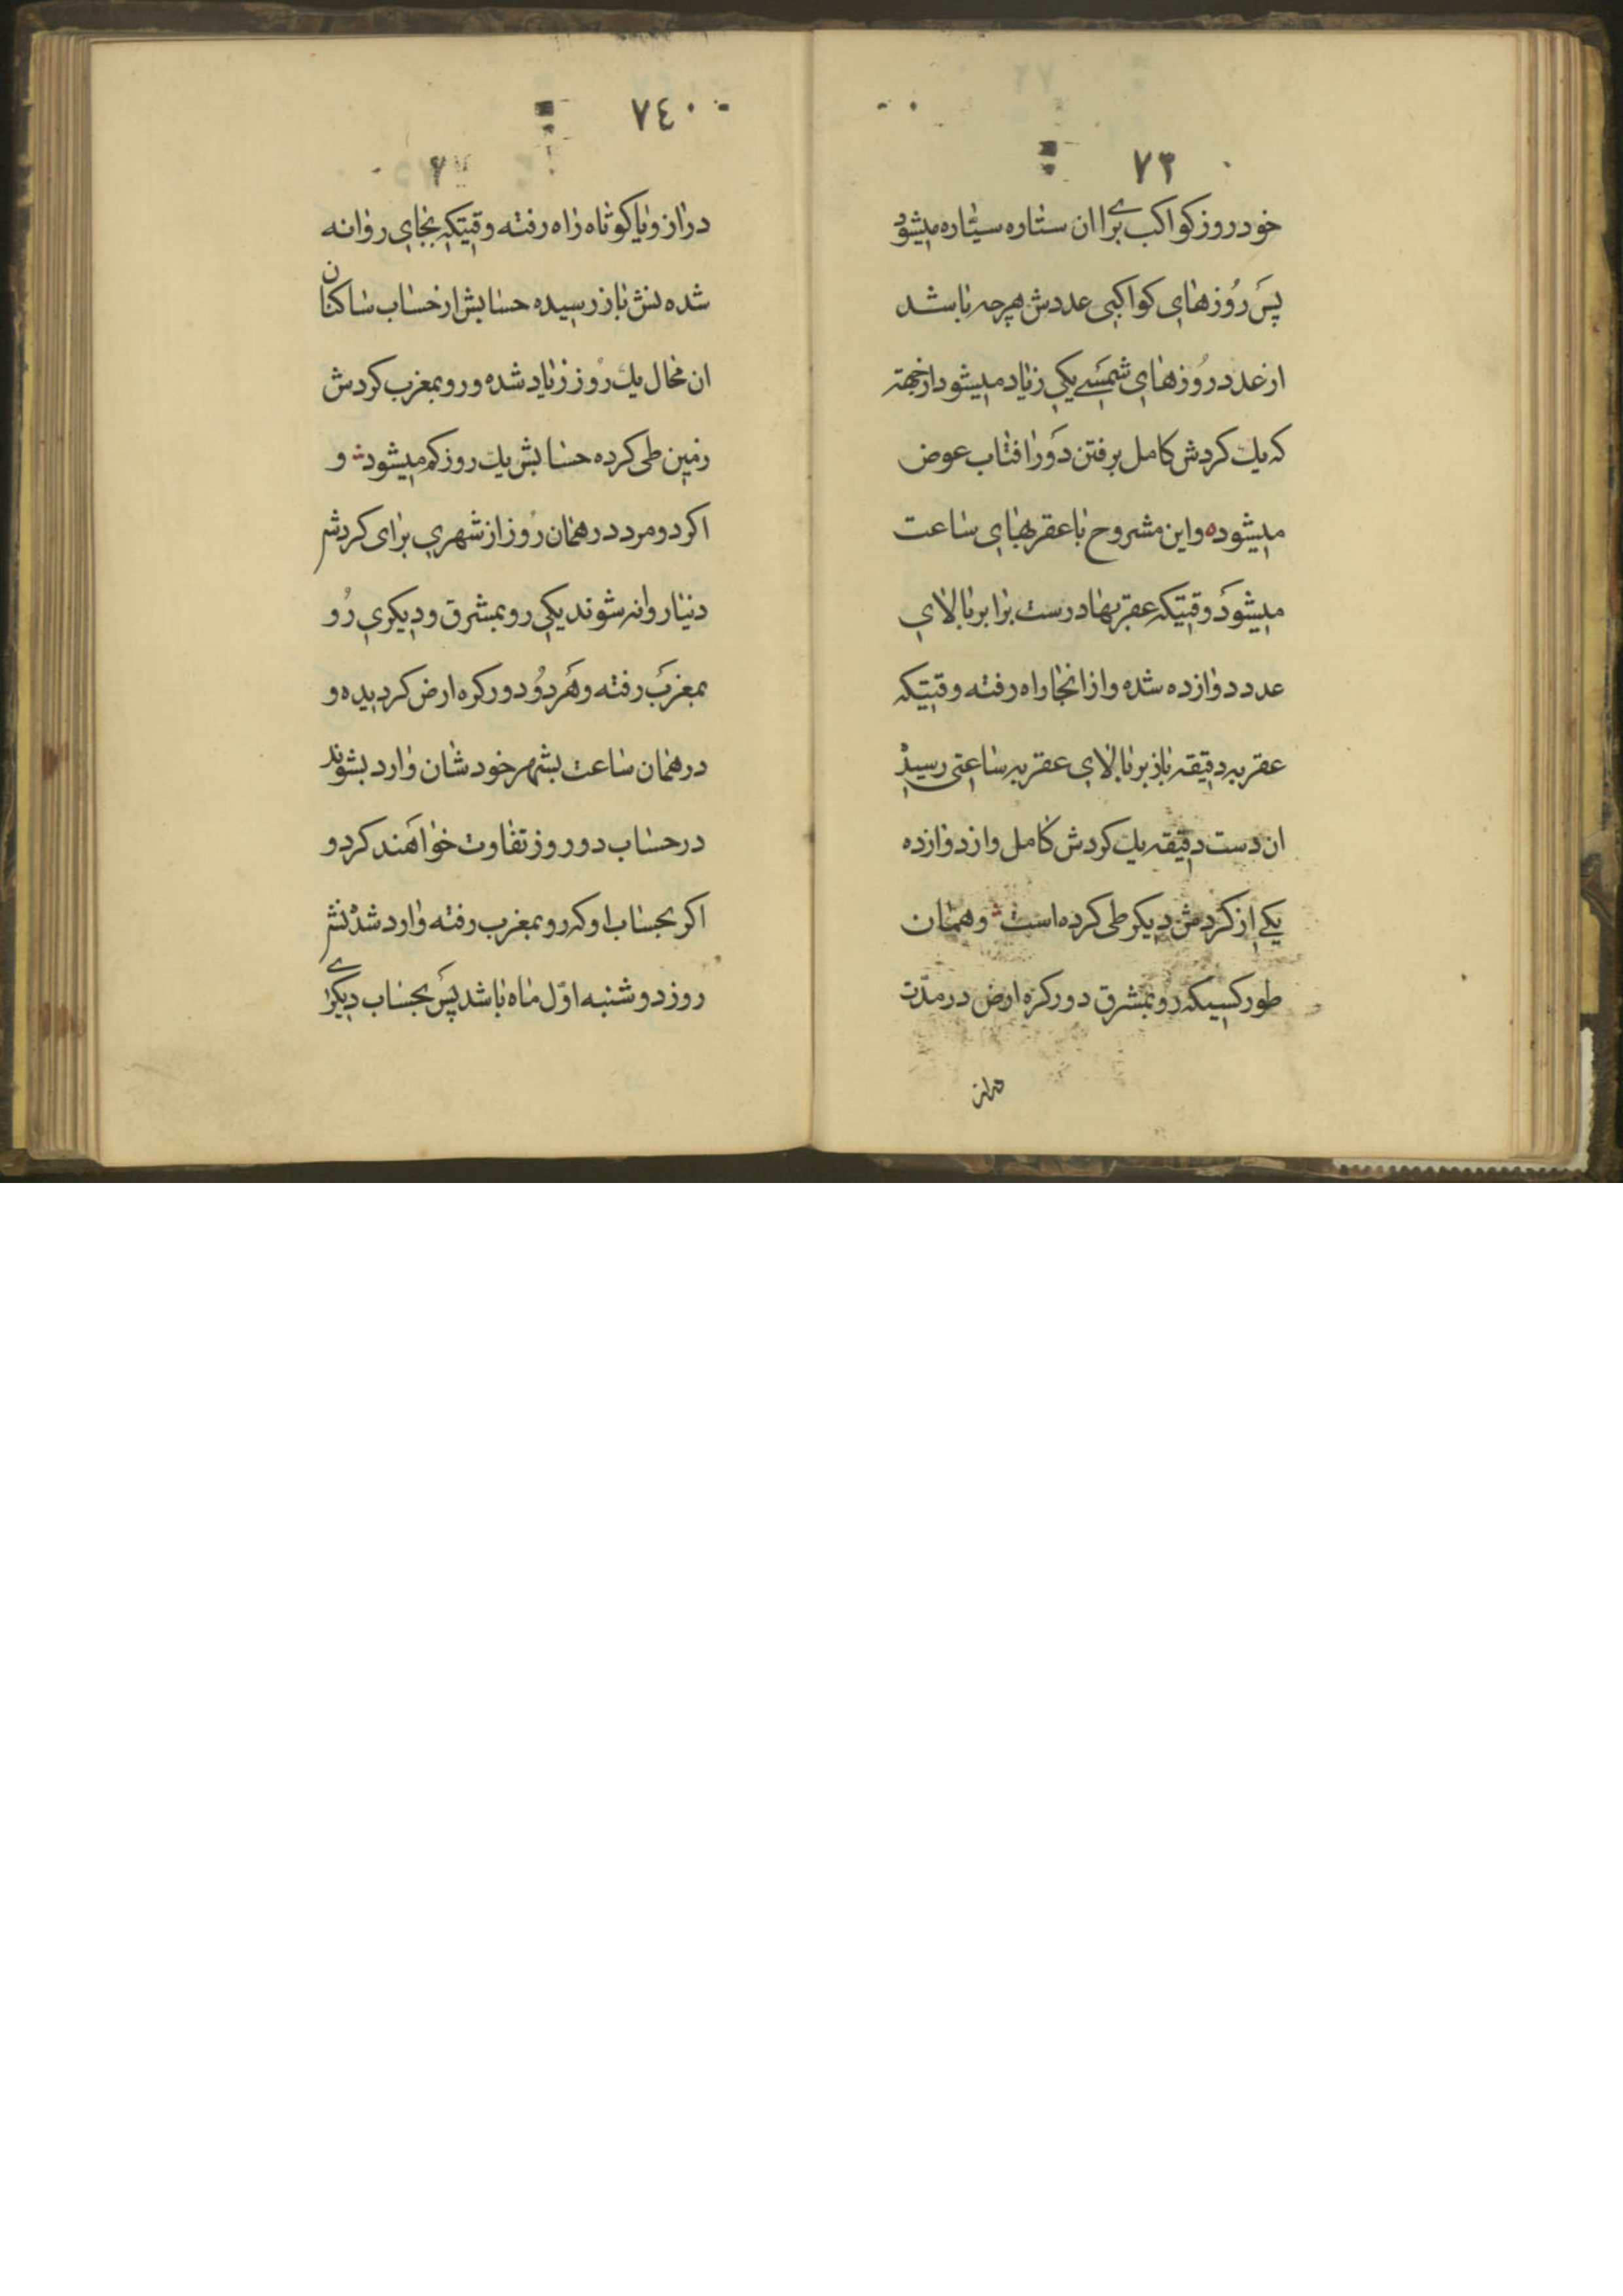 ٧٣
خود روز کواکب برای ان ستاره سیّاره میشود
پس رُوزهای کواکبی عددش هرچه باشد
از عدد رُوزهای شمسے یکی زیاد میشود از جهة
که یك کردش کامل برفتن دَور افتاب عوض
میشوده و این مشروح با عقربهای ساعت
میشود وقتیکه عقربها درست برابر بالای
عدد دوازده شده و از انجا راه رفته وقتیکه
عقربه دقیقه باز بر بالای عقربه ساعتی رسید
ان دست دقیقه یك کردش کامل و از دوازده
یکے از کردش دیکر طی کرده است و همان
طور کسیکه رو بمشرق دور کره ارض در مدّت
دراز
٧٤
دراز و یا کوتاه راه رفته وقتیکه بجای روانه
شده نش باز رسیده حسابش از حساب ساکنان
ان محال یك روز زیاد شده و رو بمغرب کردش
زمین طی کرده حسابش یك روز کم میشود و
اکر دو مرد در همان رُوز از شهری برای کردش
دنیا روانه شوند یکی رو بمشرق و دیکری رُو
بمغرب رفته و هَر دُو دور کره ارض کردیده و
در همان ساعت بشهر خودشان وارد بشوند
در حساب دو روز تفاوت خواهَند کرد و
اکر بحساب او که رو بمغرب رفته وارد شدنش
روز دوشنبه اوّل ماه باشد پَس بحساب دیکرے